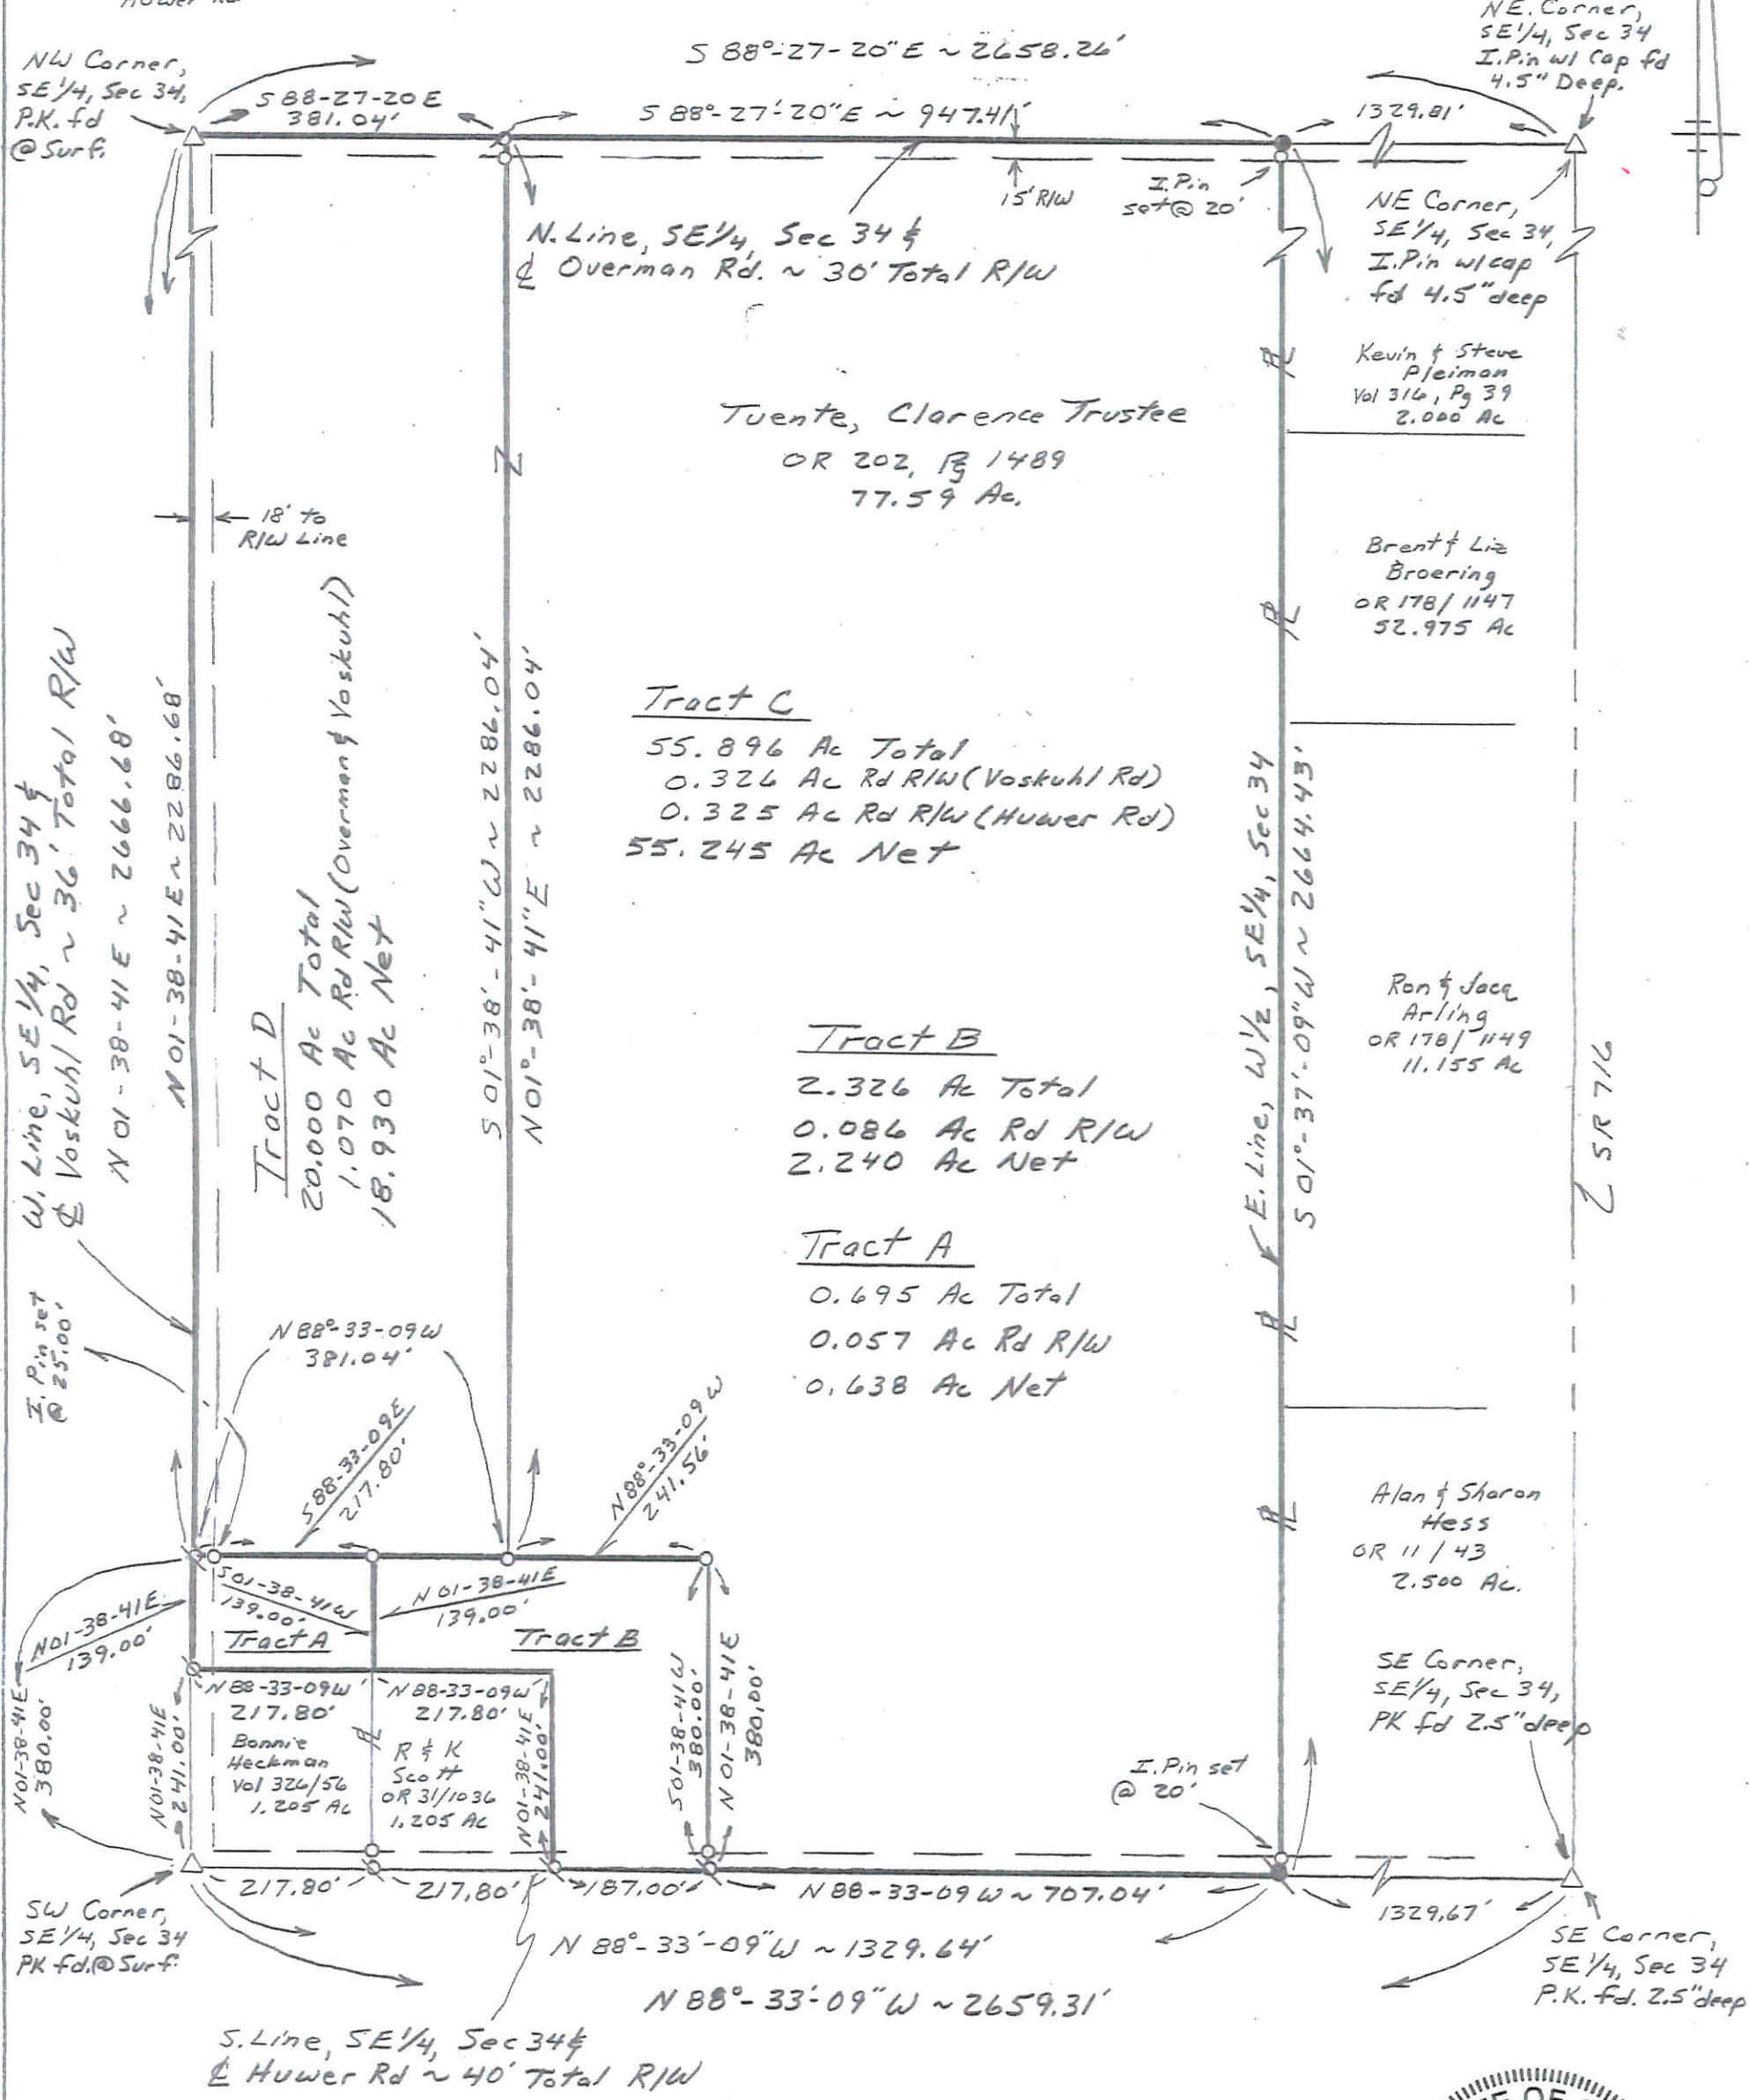 Huwer Rd
NW Corner,
SE 1/4, Sec 34,
P.K. fd
@ Surf.
S 88°-27-20"E ~ 2658.26'
NE. Corner,
SE 1/4, Sec 34
I.Pin w/ Cap fd
4.5" Deep.
S 88-27-20 E
381.04'
S 88°-27'-20"E ~ 947.41'
1329.81'
15' R/W
I.Pin
set @ 20'
NE Corner,
SE 1/4, Sec 34,
I.Pin w/ cap
fd 4.5" deep
N. Line, SE 1/4, Sec 34 &
℄ Overman Rd. ~ 30' Total R/W
Kevin & Steve
Pleiman
Vol 316, Pg 39
2.000 Ac
Tuente, Clarence Trustee
OR 202, Pg 1489
77.59 Ac.
18' to
R/W Line
Brent & Liz
Broering
OR 178/1147
52.975 Ac
W. Line, SE 1/4, Sec 34 &
℄ Voskuhl Rd ~ 36' Total R/W
N 01-38-41 E ~ 2666.68'
N 01-38-41 E ~ 2286.68'
Tract D
20.000 Ac Total
1.070 Ac Rd R/W (Overman & Voskuhl)
18.930 Ac Net
S 01°-38'-41"W ~ 2286.04'
N 01°-38'-41"E ~ 2286.04'
Tract C
55.896 Ac Total
0.326 Ac Rd R/W (Voskuhl Rd)
0.325 Ac Rd R/W (Huwer Rd)
55.245 Ac Net
E. Line, W 1/2, SE 1/4, Sec 34
S 01°-37'-09"W ~ 2664.43'
Ron & Jacq
Arling
OR 178/1149
11.155 Ac
SR 716
Tract B
2.326 Ac Total
0.086 Ac Rd R/W
2.240 Ac Net
Tract A
0.695 Ac Total
0.057 Ac Rd R/W
0.638 Ac Net
I. Pin set
@ 25.00'
N 88°-33-09 W
381.04'
S 88-33-09 E
217.80'
N 88°-33-09 W
241.56'
Alan & Sharon
Hess
OR 11/43
2.500 Ac.
N 01-38-41 E
139.00'
S 01-38-41 W
139.00'
N 01-38-41 E
139.00'
Tract A
Tract B
N 01-38-41 E
380.00'
N 01-38-41 E
241.00'
N 88-33-09 W
217.80'
N 88-33-09 W
217.80'
Bonnie
Heckman
Vol 326/56
1.205 Ac
R & K
Scott
OR 31/1036
1.205 Ac
N 01-38-41 E
241.00'
S 01-38-41 W
380.00'
N 01-38-41 E
380.00'
SE Corner,
SE 1/4, Sec 34,
PK fd 2.5" deep
I.Pin set
@ 20'
217.80'
217.80'
187.00'
N 88-33-09 W ~ 707.04'
1329.67'
SW Corner,
SE 1/4, Sec 34
PK fd. @ Surf.
N 88°-33'-09"W ~ 1329.64'
SE Corner,
SE 1/4, Sec 34
P.K. fd. 2.5" deep
N 88°-33'-09"W ~ 2659.31'
S. Line, SE 1/4, Sec 34 &
℄ Huwer Rd ~ 40' Total R/W